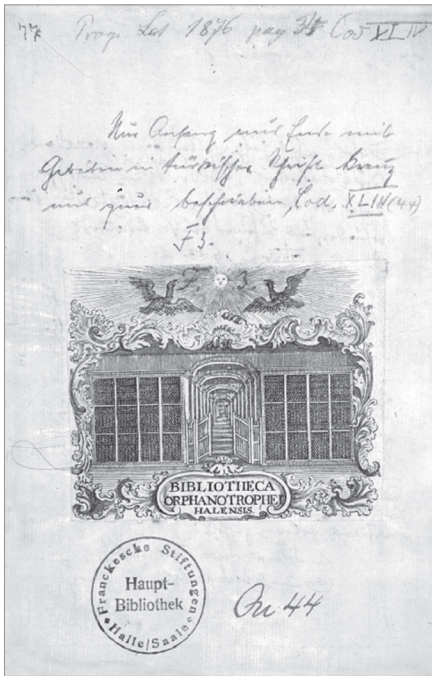 Prog. Lat 1876 pag Cod XLIV
Nur Anfang und Ende mit
Gebeten in türkischer Schrift kreuz
und quer beschrieben, Cod. XLIV (44)
F 3.
F. 3.
BIBLIOTHECA
ORPHANOTROPHEI
HALENSIS.
Franckesche Stiftungen
Haupt-
Bibliothek
Halle/Saale
44